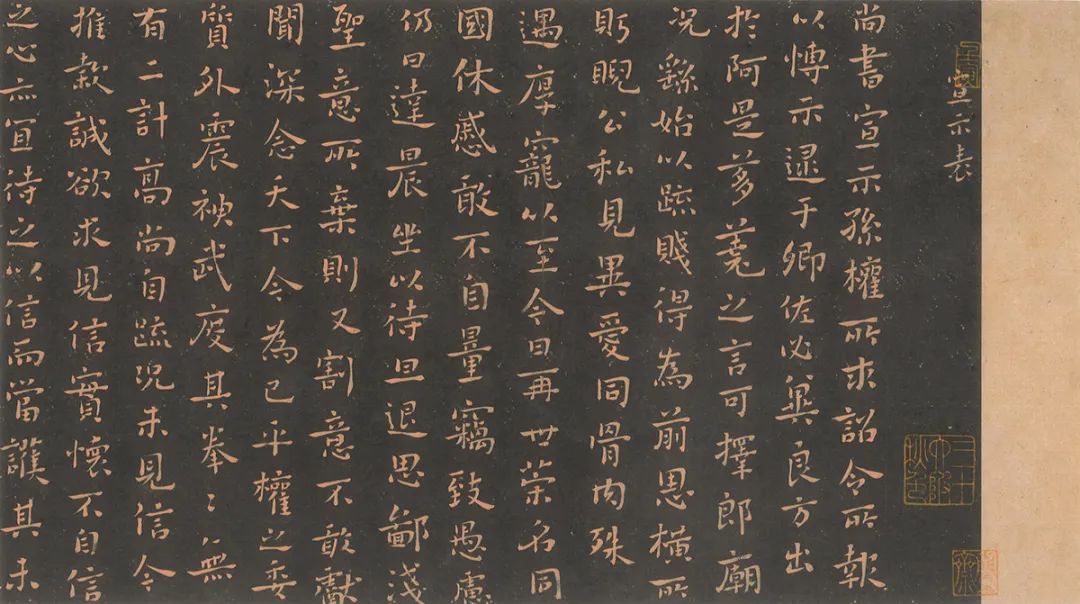 宣示表
尚書宣示孫權所求詔令所報
以博示逮于卿佐必冀良方出
於阿是芻蕘之言可擇郎廟
況繇始以疏賤得為前恩橫所
眄睨公私見異愛同骨肉殊
遇厚寵以至今日再世榮名同
國休慼敢不自量竊致愚慮
仍日達晨坐以待旦退思鄙淺
聖意所棄則又割意不敢獻
聞深念天下今為已平權之委
質外震神武度其拳ミ無
有二計高尚自疏況未見信今
推款誠欲求見信實懷不自信
之心亦宜待之以信而當護其未